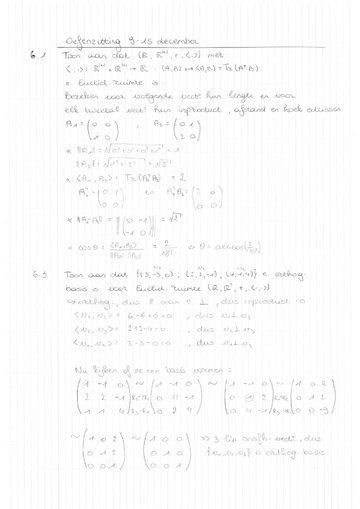 Oefenzitting 9 - 15 december
6.1 Toon aan dat (ℝ, ℝ²ˣ², +, <.,.>) met
<.,.> : ℝ²ˣ² × ℝ²ˣ² → ℝ : (A,B) ↦ <A,B> = Tr(AᵀB)
Euclid. ruimte is.
Bereken voor volgende hun lengte en voor
elk tweetal hun inproduct, afstand en hoek
A₁ = (0 0 / 1 0) , A₂ = (0 1 / 2 0)
‖A₁‖ = √(0²+0²+0²+1²) = 1
‖A₂‖ = √(1²+2²) = √5
<A₁,A₂> = Tr(A₁ᵀA₂) = 2
A₁ᵀ = (0 1 / 0 0) en A₁ᵀA₂ = (2 0 / 0 0)
‖A₁-A₂‖ = ‖(0 -1 / -1 0)‖ = √2
cos θ = <A₁,A₂> / ‖A₁‖ ‖A₂‖ = 2/√5 ⇒ θ = arccos(2/√5)
6.3 Toon aan dat {(3,-3,0) ; (2,2,-1) ; (1,1,4)} orthog.
basis is voor Euclid. ruimte (ℝ, ℝ³, +, <.,.>)
orthog., dus 2 aan 2 ⊥, dus inproduct = 0
<v₁,v₂> = 6-6+0 = 0 , dus v₁ ⊥ v₂
<v₂,v₃> = 2+2-4 = 0 , dus v₂ ⊥ v₃
<v₁,v₃> = 3-3+0 = 0 , dus v₁ ⊥ v₃
Nu kijken of ze een basis vormen :
(1 -1 0 / 2 2 -1 / 1 1 4) ~ (1 -1 0 / 0 4 -1 / 0 2 4) ~ (1 -1 0 / 0 1 2 / 0 4 -1) ~ (1 0 2 / 0 1 2 / 0 0 -9)
~ (1 0 2 / 0 1 2 / 0 0 1) ~ (1 0 0 / 0 1 0 / 0 0 1) ⇒ 3 lin. onafh. vect., dus
{v₁,v₂,v₃} is orthog. basis